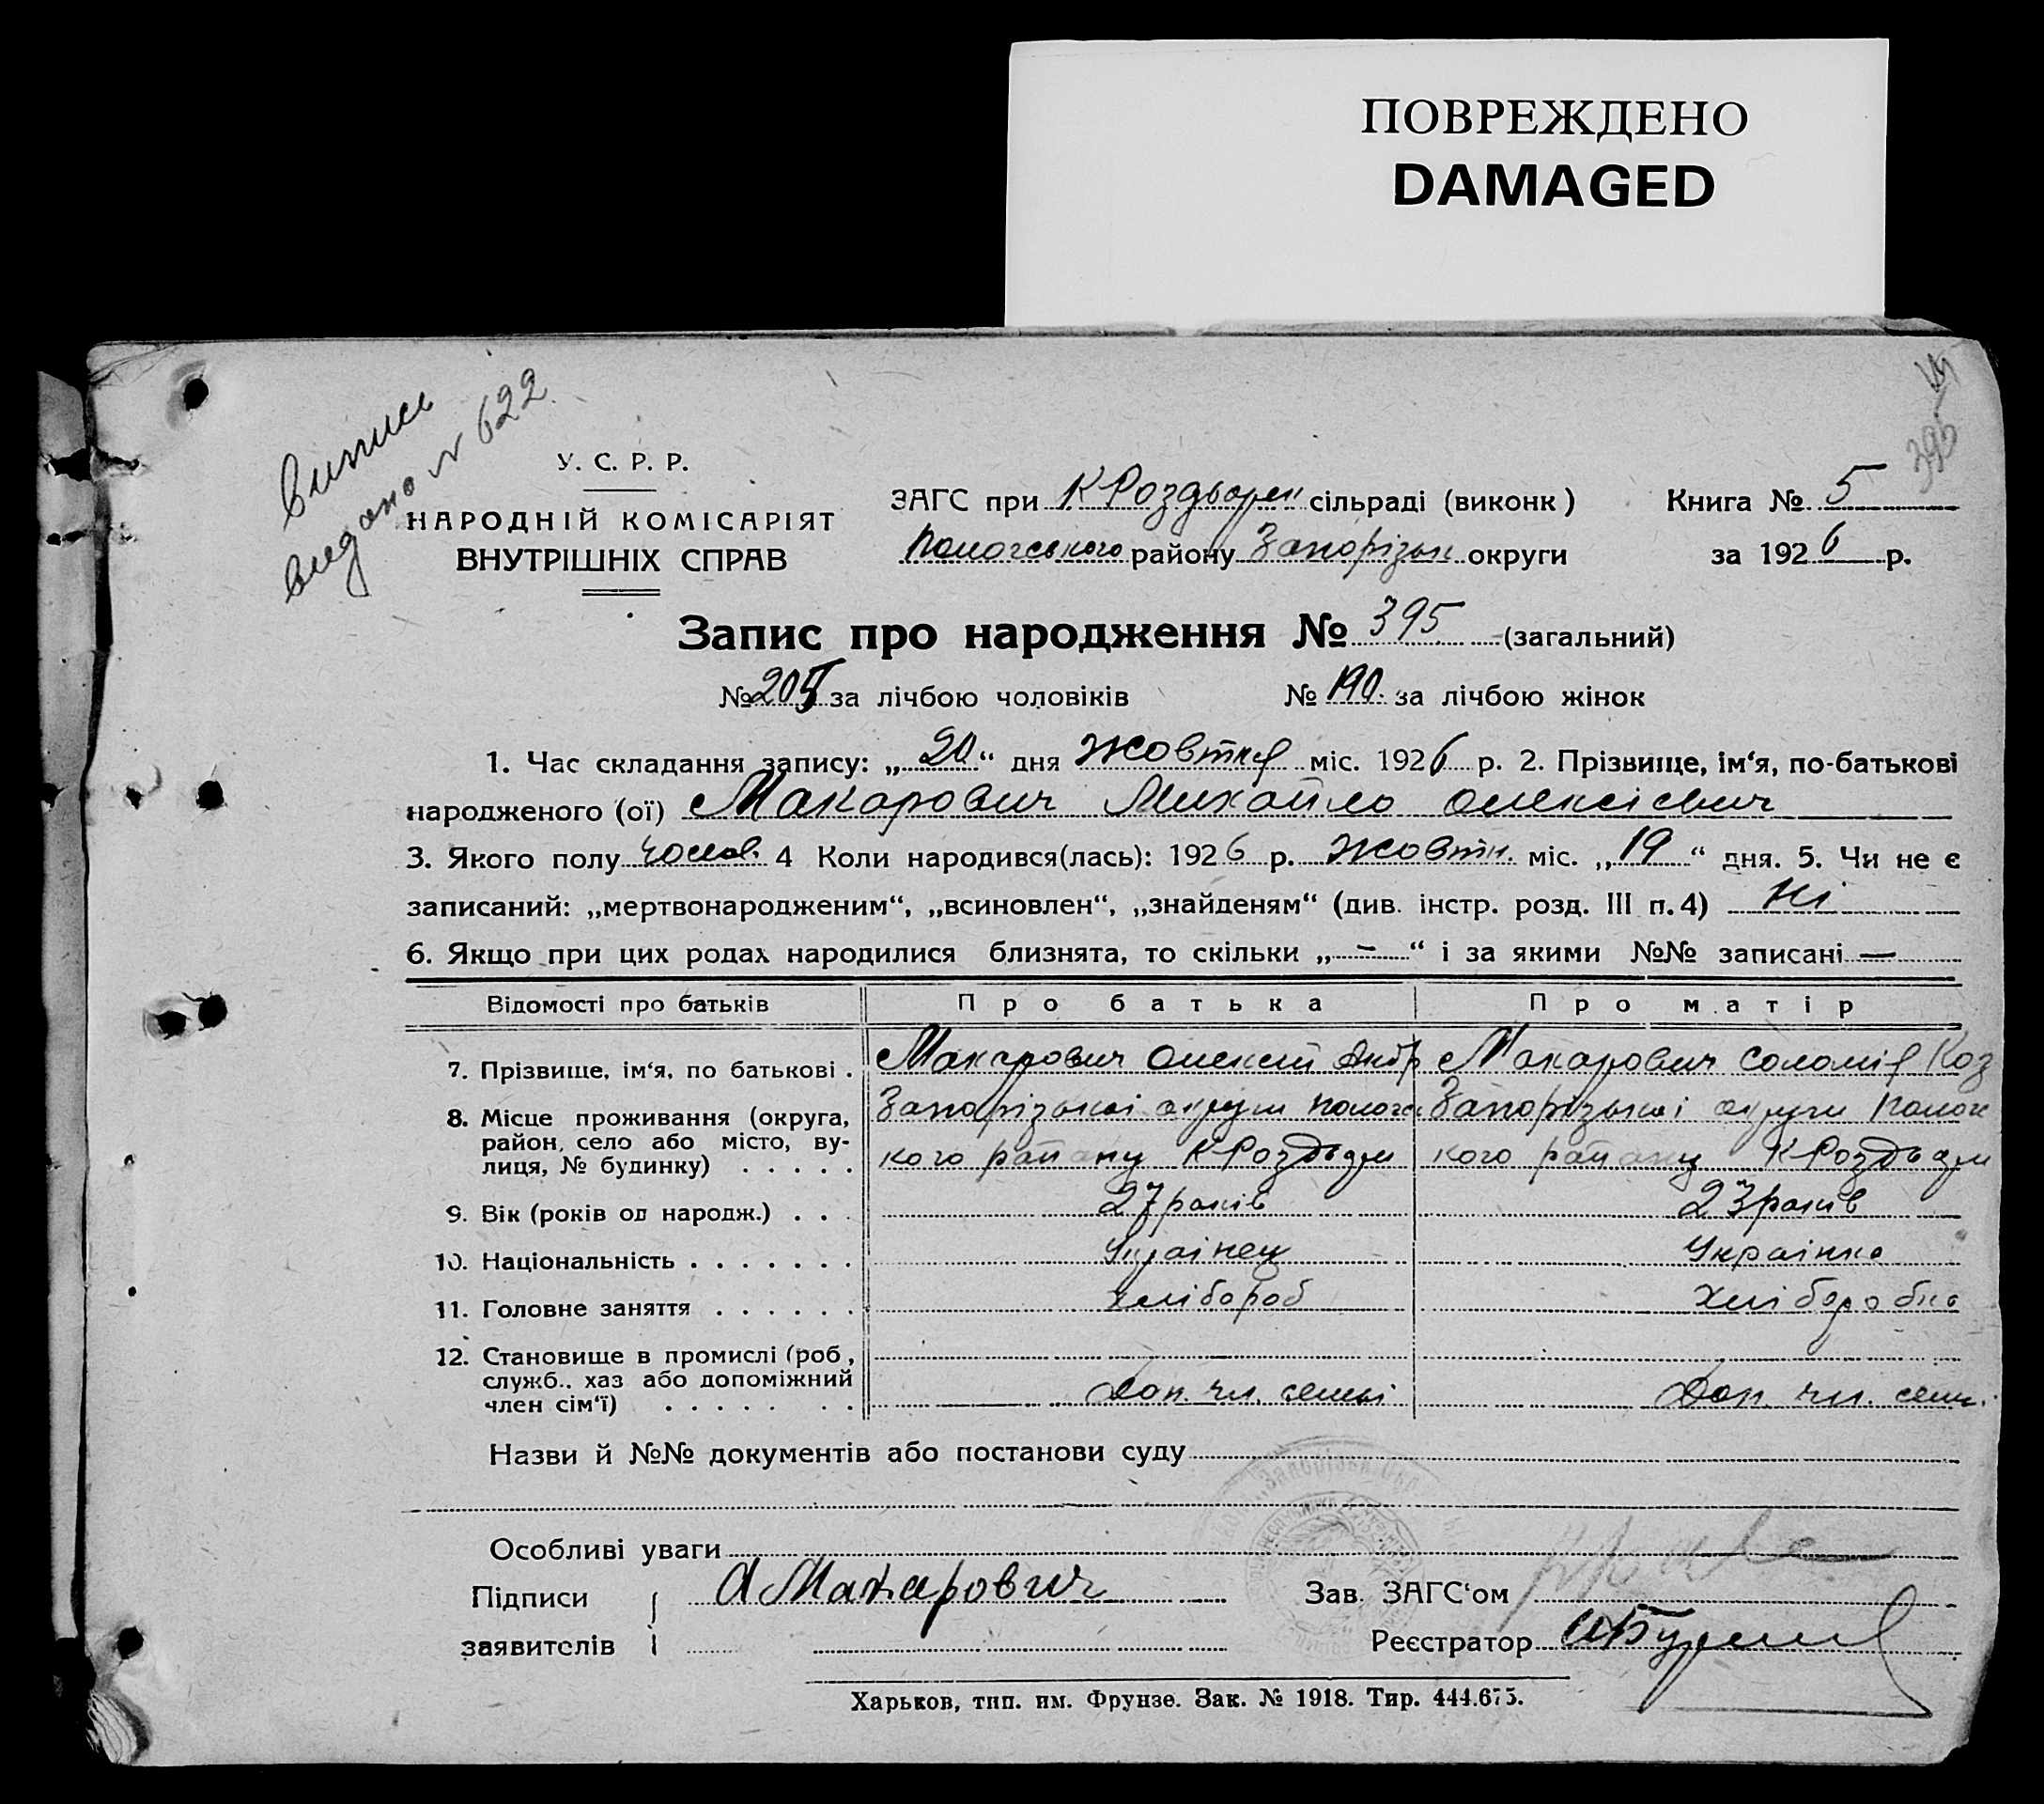 ПОВРЕЖДЕНО
DAMAGED
Випись
видано № 622
395
У. С. Р. Р.
НАРОДНІЙ КОМІСАРІЯТ
ВНУТРІШНІХ СПРАВ
ЗАГС при К Роздорськ сільраді (виконк )
Пологського району Запорізьк округи
Книга № 5
за 1926 р.
Запис про народження № 395 (загальний)
№ 205 за лічбою чоловіків № 190 за лічбою жінок
1. Час складання запису: „20“ дня жовтня міс. 1926 р. 2. Прізвище, ім‘я, по-батькові
народженого (ої) Макарович Михайло Олексієвич
3. Якого полу чолов. 4 Коли народився(лась): 1926 р. жовтн. міс. „19“ дня. 5. Чи не є
записаний: „мертвонародженим“, „всиновлен“, „знайденям“ (див. інстр. розд. III п. 4) Ні
6. Якщо при цих родах народилися близнята, то скільки „ – “ і за якими №№ записані —
Відомості про батьків Про батька Про матір
7. Прізвище, ім‘я, по батькові . Макарович Олексій Андр Макарович Соломія Коз
8. Місце проживання (округа, район, село або місто, вулиця, № будинку) . . . . . Запорізької округи Пологс Запорізької округи Полог
кого району К Роздори кого району К Роздори
9. Вік (років од народж.) . . . 27 років 23 років
10. Національність . . . . . . . Українец Українка
11. Головне заняття . . . . . . Хлібороб Хліборобка
12. Становище в промислі (роб , служб.. хаз або допоміжний член сім‘ї) . . . . . . . Доп. чл. семьі Доп. чл. семь.
Назви й №№ документів або постанови суду
Особливі уваги
Підписи А Макарович Зав. ЗАГС‘ом
заявителів Реєстратор
Харьков, тип. им. Фрунзе. Зак. № 1918. Тир. 444.675.